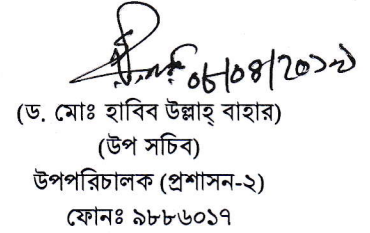 (ড. মোঃ হাবিব উল্লাহ্ বাহার)
(উপ সচিব)
উপপরিচালক (প্রশাসন-২)
ফোনঃ ৯৮৮৬০১৭